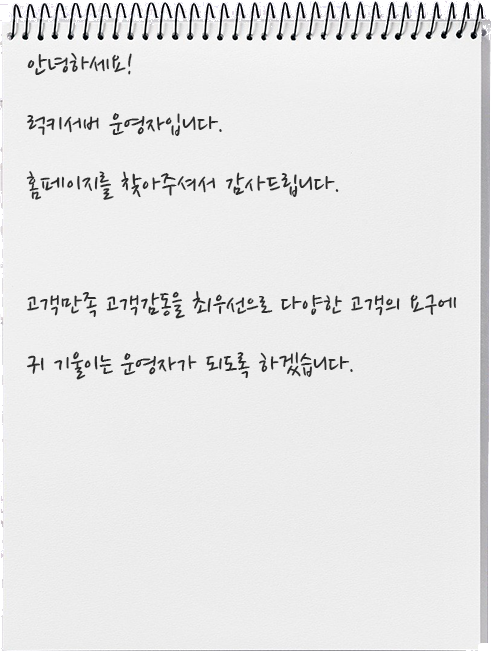 안녕하세요!
럭키서버 운영자입니다.
홈페이지를 찾아주셔서 감사드립니다.
고객만족 고객감동을 최우선으로 다양한 고객의 요구에
귀 기울이는 운영자가 되도록 하겠습니다.